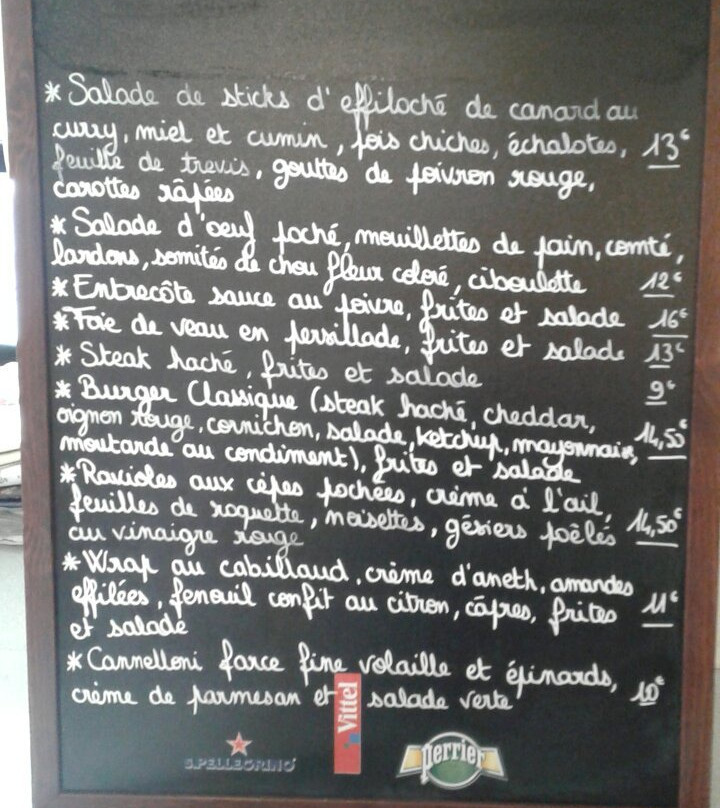 * Salade de sticks d'effiloché de canard au
curry, miel et cumin, pois chiches, échalotes, 13€
feuille de trevis, gouttes de poivron rouge,
carottes râpées
* Salade d'oeuf poché, mouillettes de pain, comté,
lardons, somités de chou fleur coloré, ciboulette 12€
* Entrecôte sauce au poivre, frites et salade 16€
* Foie de veau en persillade, frites et salade 13€
* Steak haché, frites et salade 9€
* Burger Classique (steak haché, cheddar,
oignon rouge, cornichon, salade, ketchup, mayonnaise, 14,50€
moutarde au condiment), frites et salade
* Ravioles aux cèpes pochées, crème à l'ail,
feuilles de roquette, noisettes, gésiers poêlés 14,50€
au vinaigre rouge
* Wrap au cabillaud, crème d'aneth, amandes
effilées, fenouil confit au citron, câpres, frites 11€
et salade
* Cannelloni farce fine volaille et épinards,
crème de parmesan et salade verte 10€
S.PELLEGRINO
Vittel
perrier